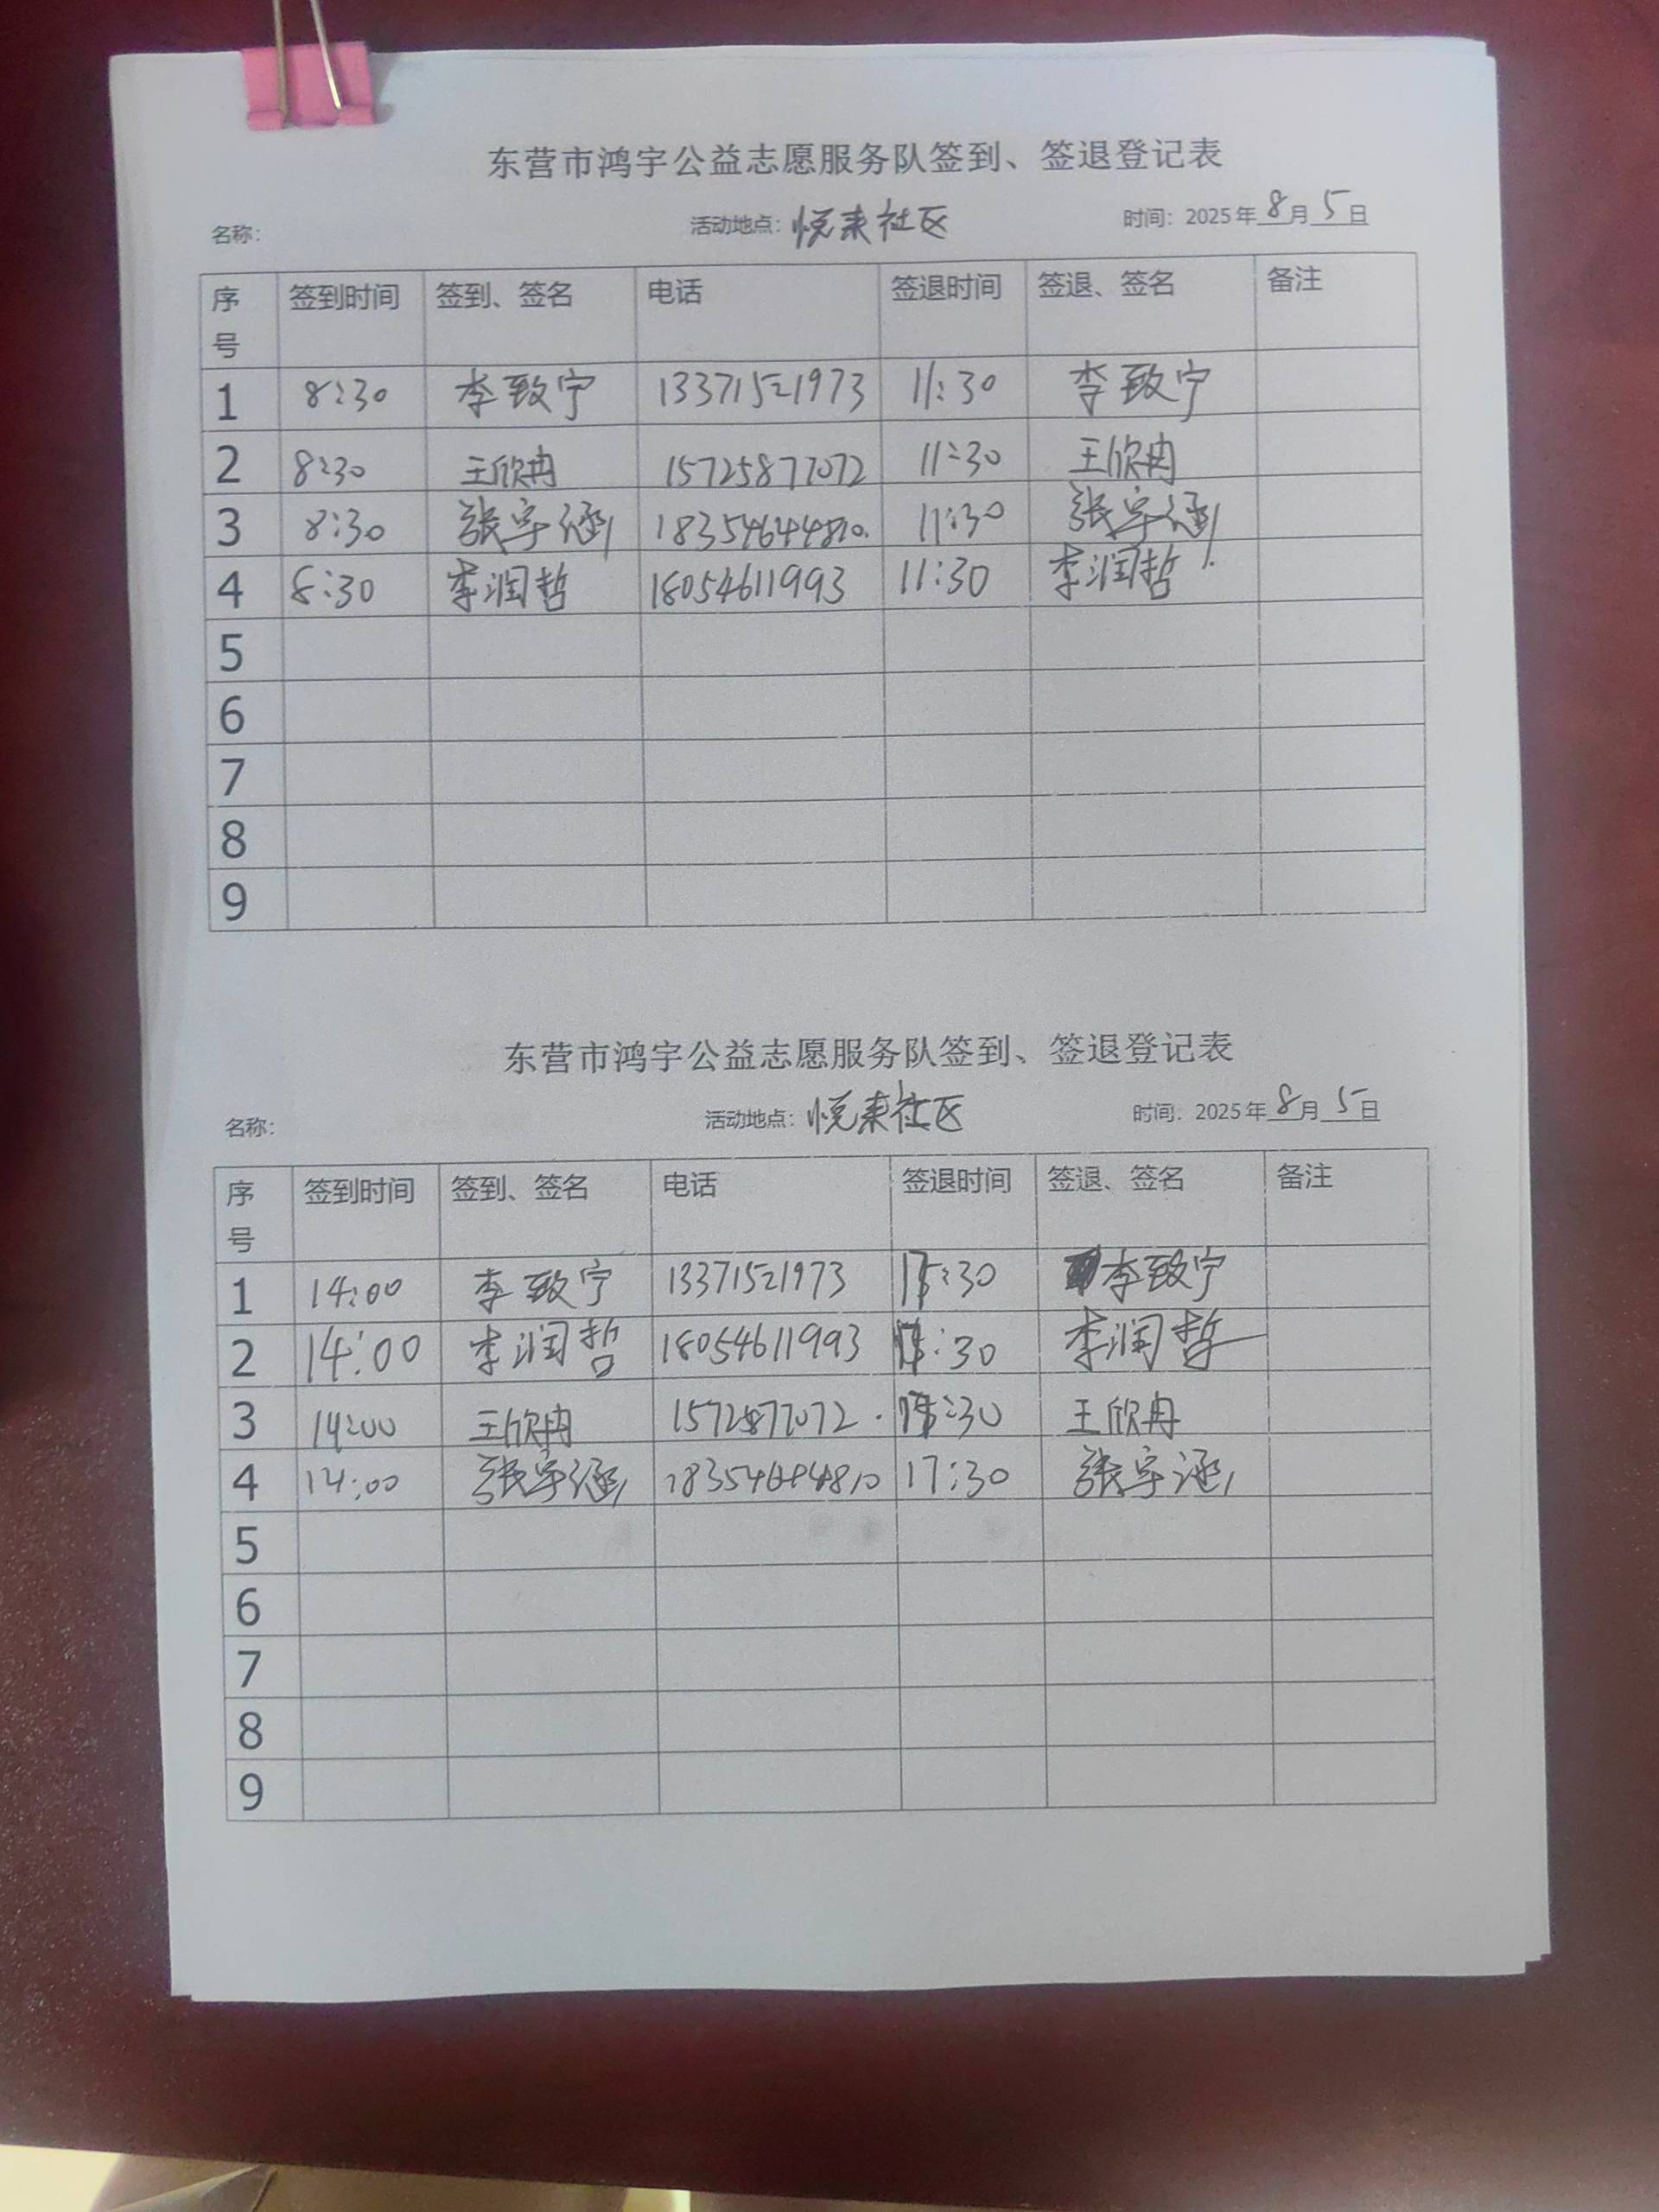 东营市鸿宇公益志愿服务队签到、签退登记表
名称： 活动地点：悦来社区 时间：2025年8月5日
序号 签到时间 签到、签名 电话 签退时间 签退、签名 备注
1 8:30 李致宁 13371521973 11:30 李致宁
2 8:30 王欣冉 15725877072 11:30 王欣冉
3 8:30 张宇涵 18354644810 11:30 张宇涵
4 8:30 李润哲 18054611993 11:30 李润哲
5
6
7
8
9
东营市鸿宇公益志愿服务队签到、签退登记表
名称： 活动地点：悦来社区 时间：2025年8月5日
序号 签到时间 签到、签名 电话 签退时间 签退、签名 备注
1 14:00 李致宁 13371521973 :30 李致宁
2 14:00 李润哲 18054611993 :30 李润哲
3 14:00 王欣冉 :30 王欣冉
4 14:00 张宇涵 17:30 张宇涵
5
6
7
8
9